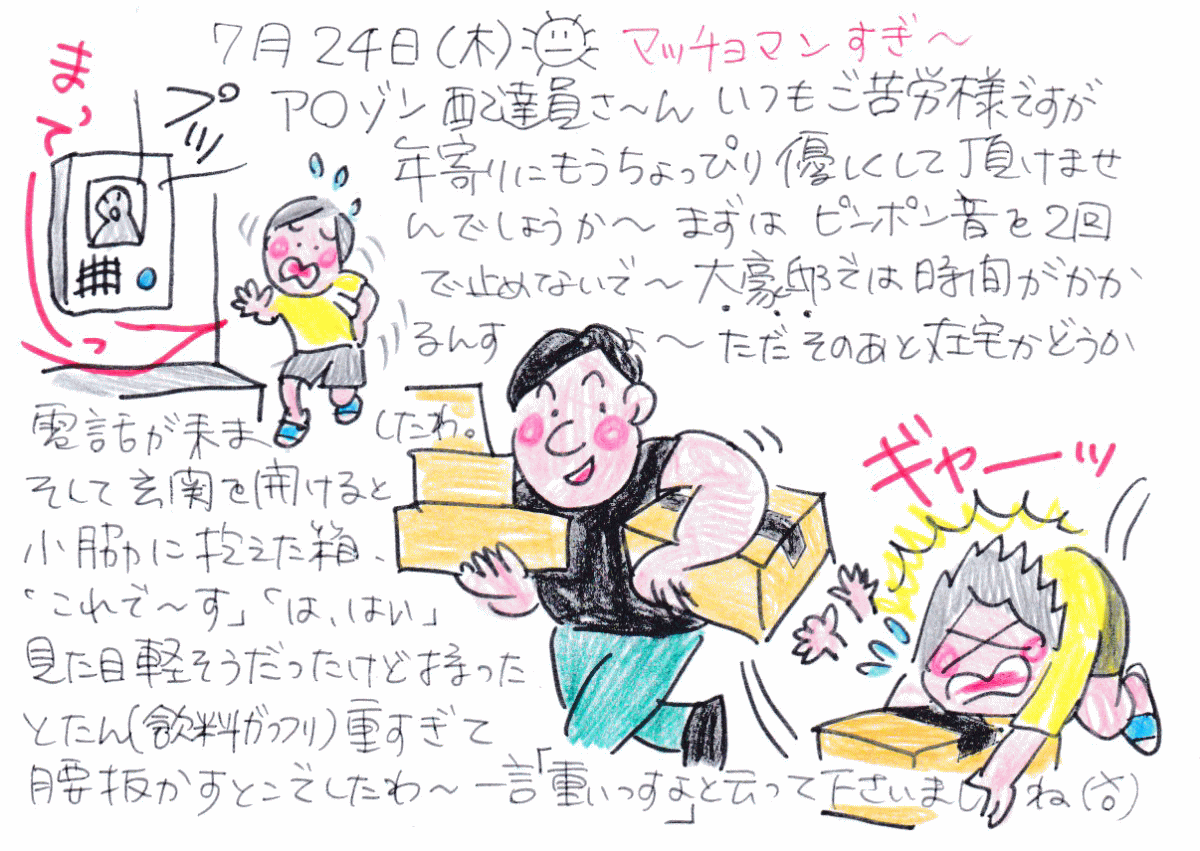 7月24日(木) マッチョマンすぎ〜
ア〇ゾン配達員さ〜んいつもご苦労様ですが
年寄りにもうちょっぴり優しくして頂けませ
んでしょうか〜まずはピンポン音を2回
で止めてないで〜大豪邸では時間がかか
るんすよ〜ただそのあと在宅かどうか
電話が来ましたわ。
そして玄関を開けると
小脇に抱えた箱、
「これで〜す」「は、はい」
見た目軽そうだったけど持った
とたん(飲料ガッツリ)重すぎて
腰抜かすとこでしたわ〜一言「重いっすよ」と云って下さいましね(笑)
まってっ
プッ
ギャーッ